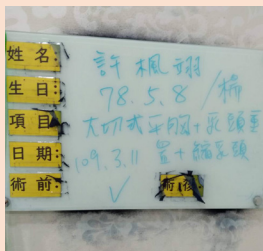 姓名: 許楓翊
生日: 78.5.8 /
項目: 大切式平胸+乳頭重
日期: 109.3.11 置+縮乳頭
術前: ✓ 術後: